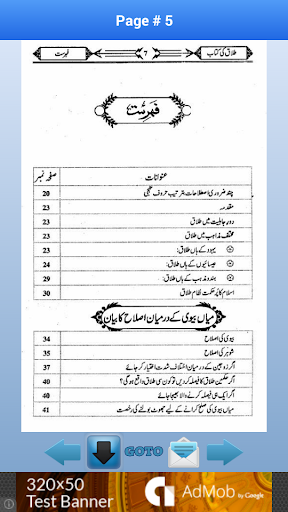 Page # 5
طلاق کی کتاب 7 فہرست
فہرست
عنوانات صفحہ نمبر
چند ضروری اصطلاحات بترتیب حروف تہجی 20
مقدمہ 23
دورِ جاہلیت میں طلاق 23
مختلف مذاہب میں طلاق 23
یہود کے ہاں طلاق: 23
عیسائیوں کے ہاں طلاق: 24
ہندو مذہب کے ہاں طلاق: 29
اسلام کا پُر حکمت نظام طلاق 30
میاں بیوی کے درمیان اصلاح کا بیان
بیوی کی اصلاح 34
شوہر کی اصلاح 35
اگر زوجین کے درمیان اختلاف شدت اختیار کر جائے 37
اگر حکمین طلاق کا فیصلہ کریں تو کون سی طلاق واقع ہوگی؟ 40
اگر ایک ہی فیصلہ کرنے والا بھیجا جائے 40
میاں بیوی کی صلح کرانے کے لیے جھوٹ بولنے کی رخصت 41
GOTO
320x50
Test Banner
AdMob by Google